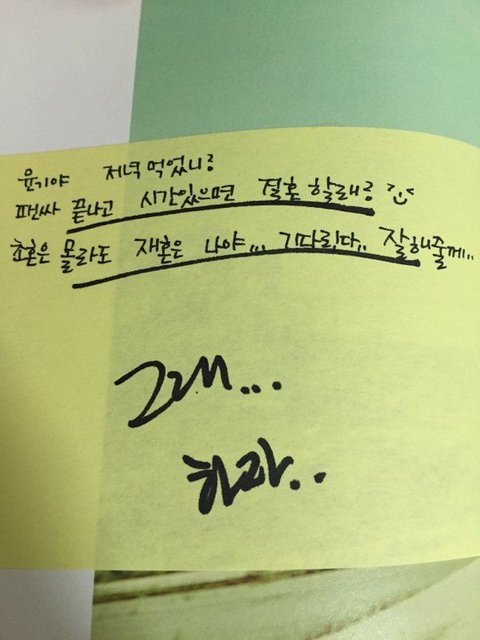 윤기야 저녁 먹었니?
팬싸 끝나고 시간있으면 결혼 할래?
초혼은 몰라도 재혼은 나야... 기다린다.. 잘해줄게..
그래...
하자..